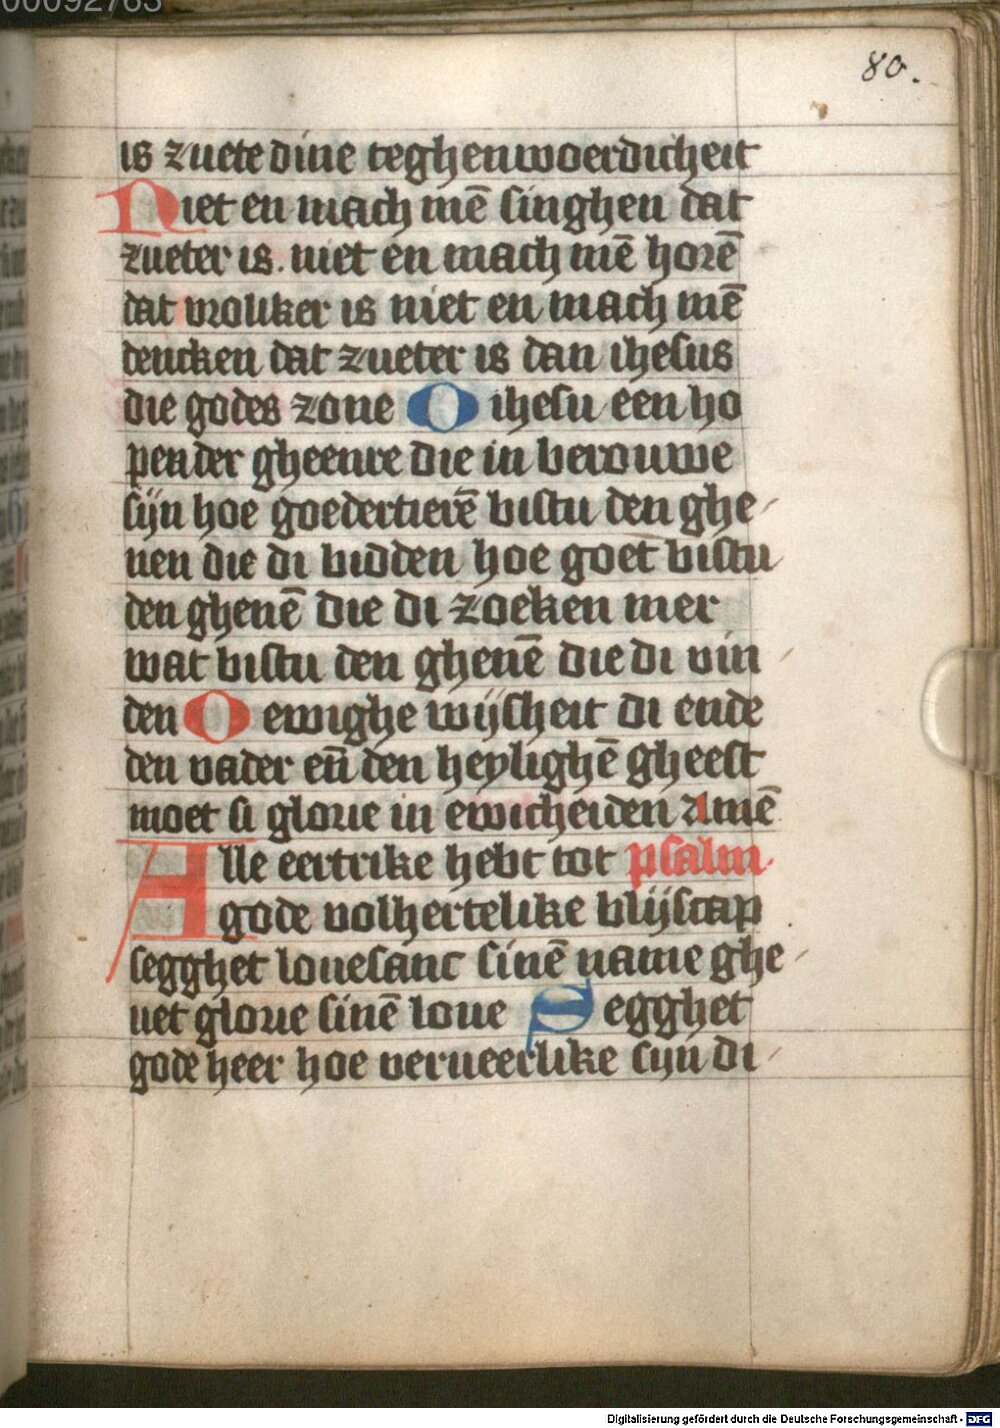 00092763
80.
is zuete dine teghenwoerdicheit
Niet en mach mē singhen dat
zueter is. niet en mach mē horē
dat vroliker is niet en mach mē
dencken dat zueter is dan ihesus
die godes zone O ihesu een ho
pender gheenre die in berouwe
sijn hoe goedertierē bistu den ghe
nen die di bidden hoe goet bistu
den ghenē die di zoeken mer
wat bistu den ghenē die di vin
den O ewighe wijsheit di ende
den vader eñ den heylighē gheest
moet si glorie in ewicheiden Amē
Alle eertrike hebt tot psalm
gode volhertelike blijscap
segghet louesanc sinē name ghe
uet glorie sinē loue Segghet
gode heer hoe verueerlike sijn di
Digitalisierung gefördert durch die Deutsche Forschungsgemeinschaft - DFG